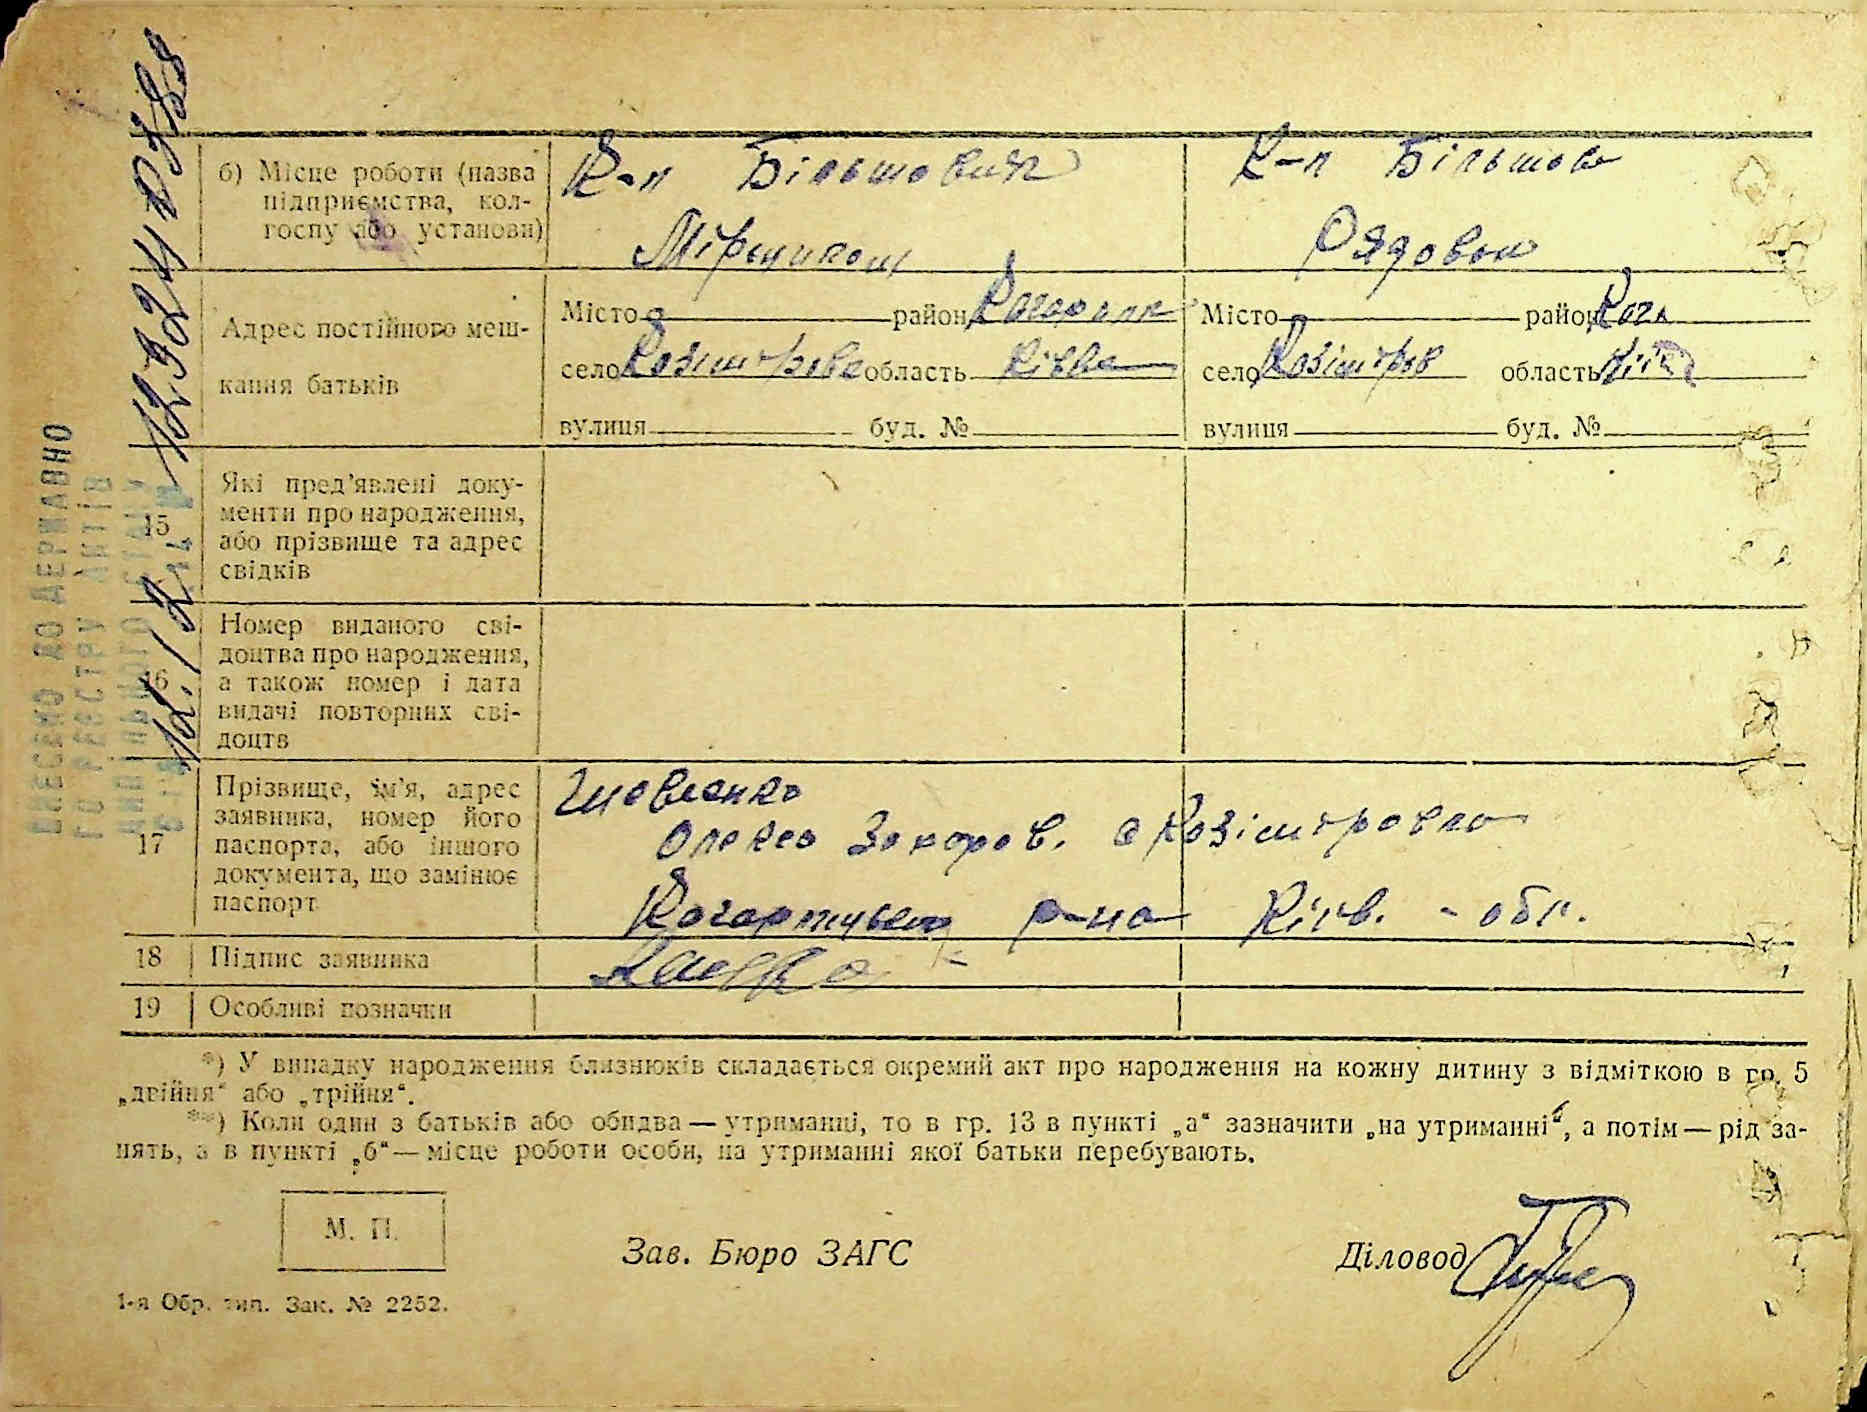 б) Місце роботи (назва
підприємства, кол-
госпу або установи)
К-п Більшовик
К-п Більшов
Рядовой
Адрес постійного меш-
кання батьків
Місто район Кагарлик
село Казімирівка область Київ
вулиця буд. №
Місто район Кага
село Казімиров область Київ
вулиця буд. №
15
Які пред'явлені доку-
менти про народження,
або прізвище та адрес
свідків
16
Номер виданого сві-
доцтва про народження,
а також номер і дата
видачі повторних сві-
доцтв
17
Прізвище, ім'я, адрес
заявника, номер його
паспорта, або іншого
документа, що замінює
паспорт
Олекса Захаров.
р-на Київ. - обл.
18 Підпис заявника
19 Особливі позначки
*) У випадку народження близнюків складається окремий акт про народження на кожну дитину з відміткою в гр. 5
„двійня“ або „трійня“.
**) Коли один з батьків або обидва — утриманці, то в гр. 13 в пункті „а“ зазначити „на утриманні“, а потім — рід за-
нять, а в пункті „б“ — місце роботи особи, на утриманні якої батьки перебувають.
М. П.
Зав. Бюро ЗАГС
Діловод
1-я Обр. тип. Зак. № 2252.
ВНЕСЕНО ДО ДЕРЖАВНО
ГО РЕЄСТРУ АКТІВ